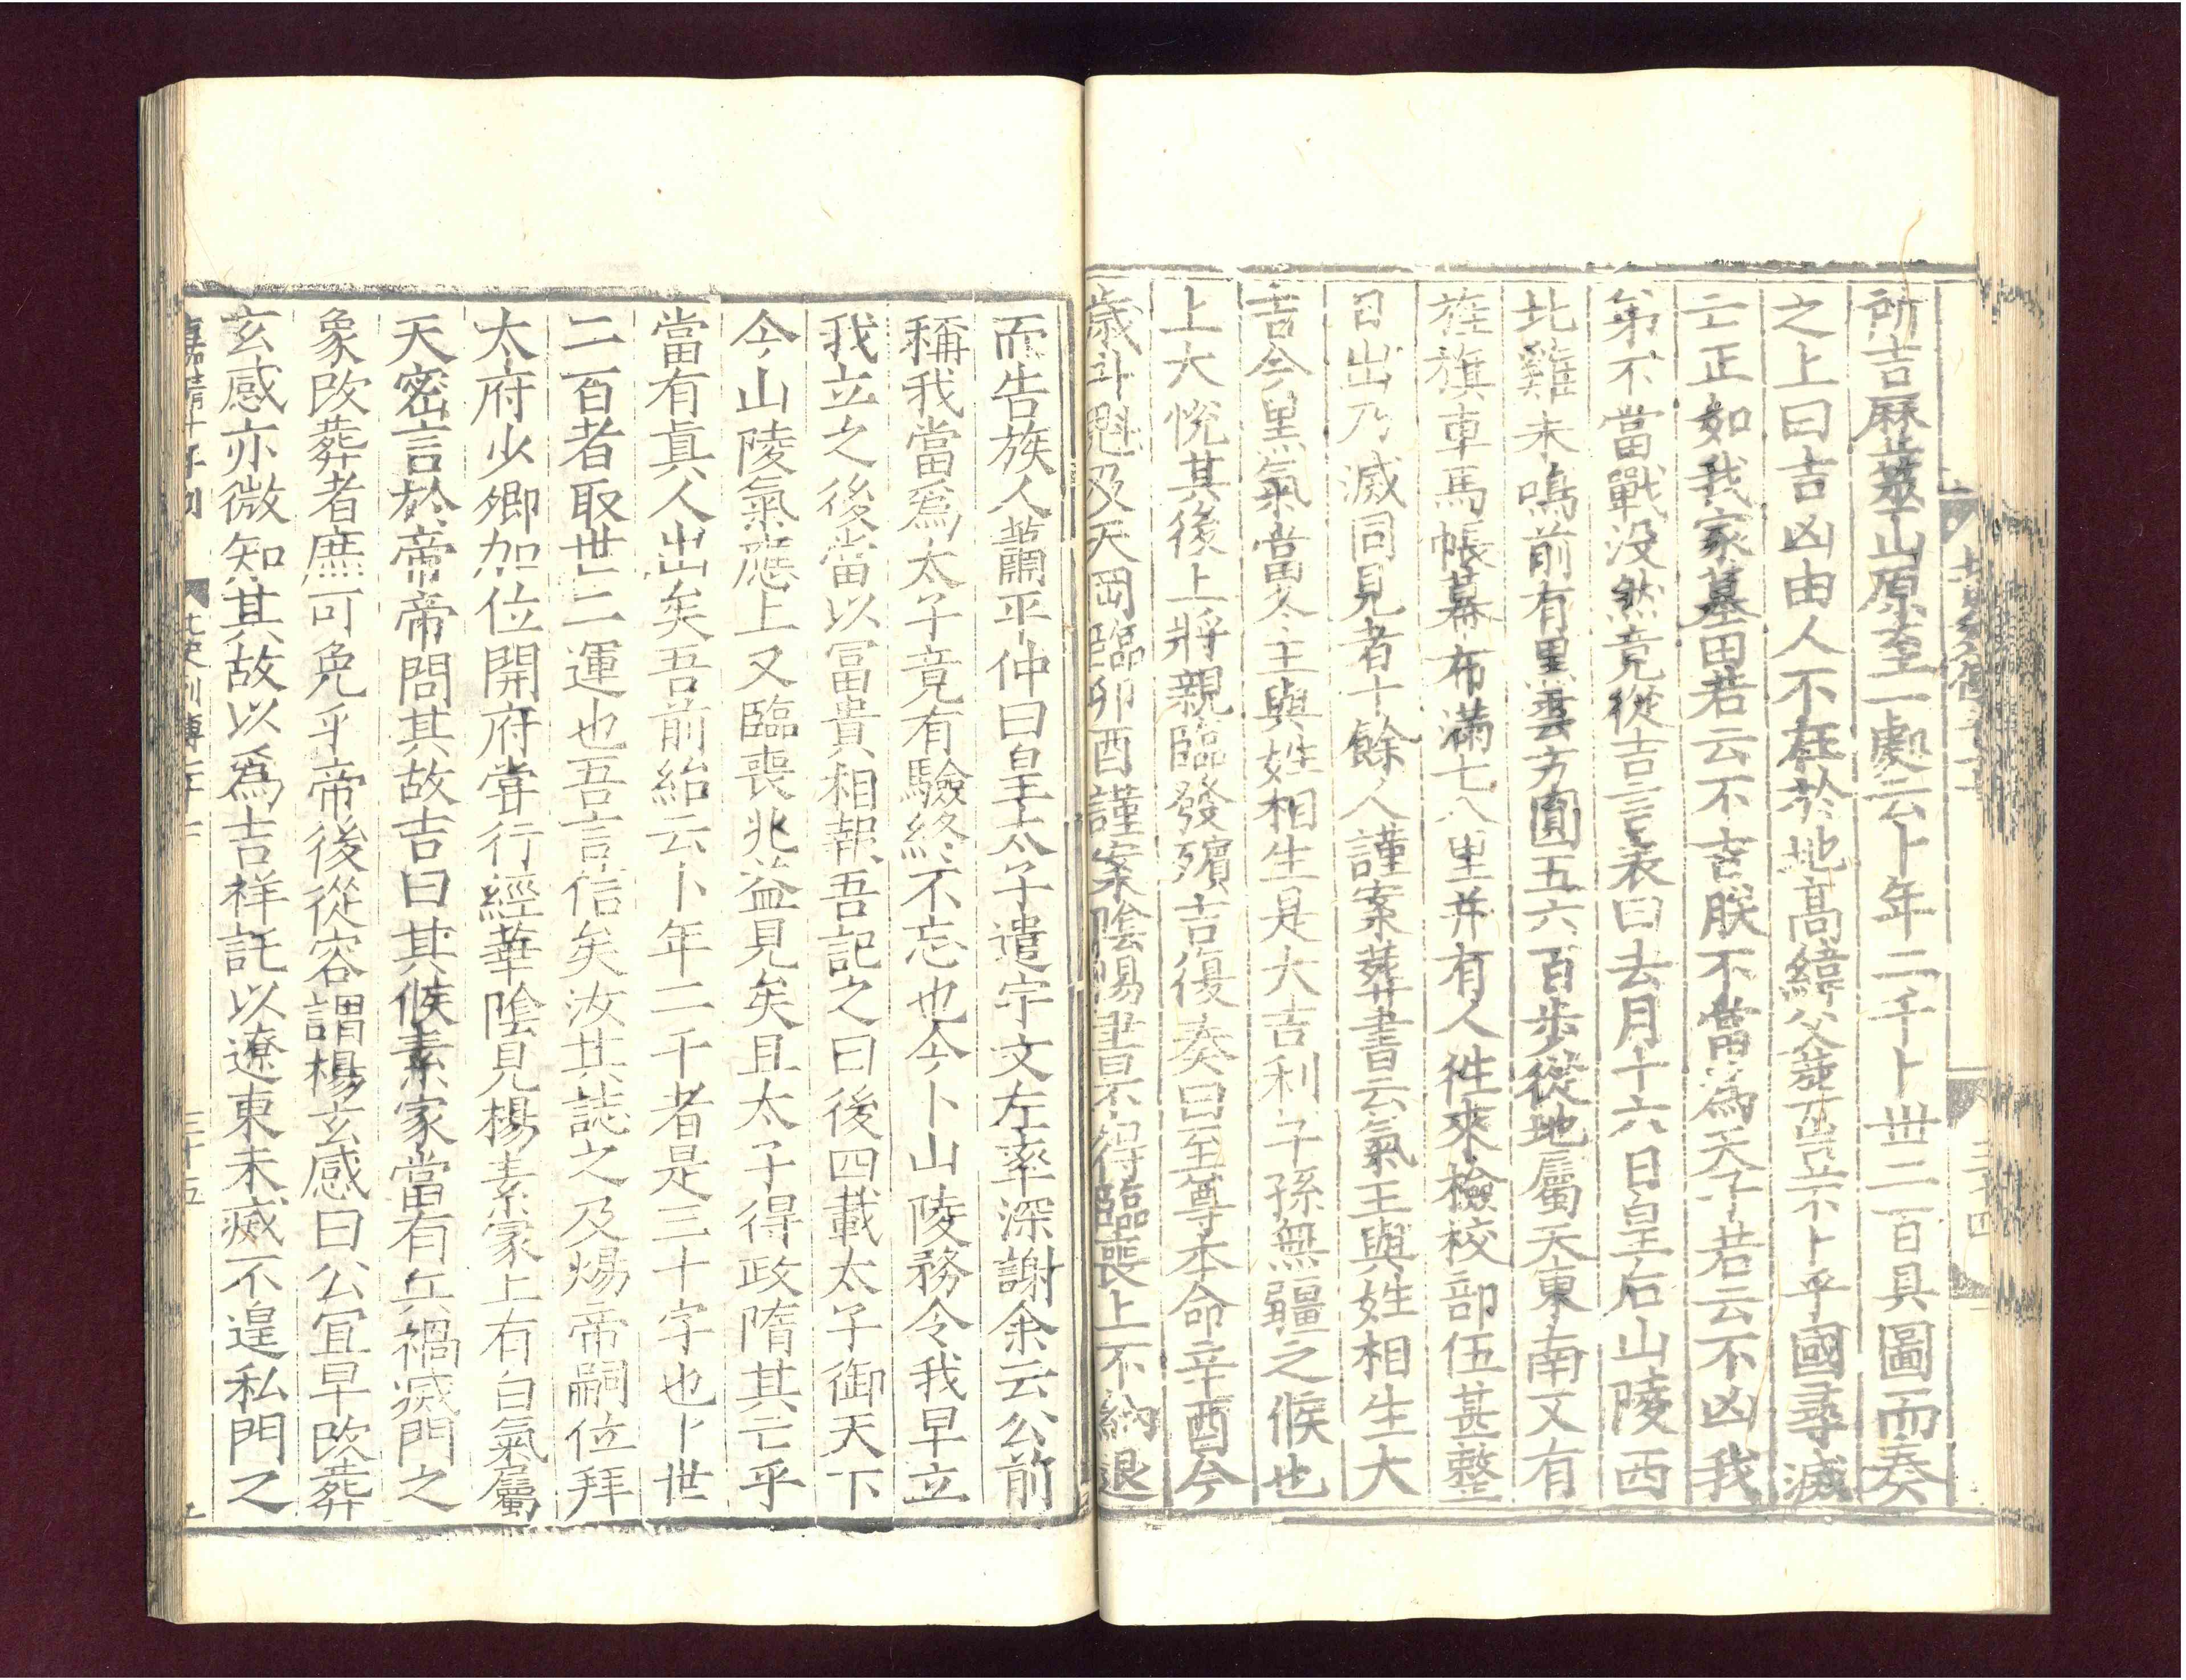 所吉歷筮山原至一處云卜年二千卜世二百具圖而奏
之上曰吉凶由人不在於地高緯父葬豈不卜乎國尋滅
亡正如我家墓田若云不吉朕不當為天子若云不凶我
弟不當戰没然竟從吉言表曰去月十六日皇后山陵西
北雞未鳴前有黑雲方圓五六百步從地屬天東南又有
旌旗車馬帳幕布滿七八里并有人徃來檢校部伍甚整
日出乃滅同見者十餘人謹案葬書云氣王與姓相生大
吉今黑氣當冬王與姓相生是大吉利子孫無疆之候也
上大悅其後上將親臨發殯吉復奏曰至尊本命辛酉今
歳斗魁及天岡臨卯酉謹案陰陽書不得臨喪上不納退
而告族人蕭平仲曰皇太子遣宇文左率深謝余云公前
稱我當爲太子竟有驗終不忘也今卜山陵務令我早立
我立之後當以富貴相報吾記之曰後四載太子御天下
今山陵氣應上又臨喪兆益見矣且太子得政隋其亡乎
當有真人出矣吾前紿云卜年二千者是三十字也卜世
二百者取世二運也吾言信矣汝其誌之及煬帝嗣位拜
太府少卿加位開府嘗行經華陰見楊素冢上有白氣屬
天密言於帝帝問其故吉曰其候素家當有兵禍滅門之
象改葬者庶可免乎帝後從容謂楊玄感曰公宜早改葬
玄感亦微知其故以爲吉祥託以遼東未滅不遑私門之
三十五